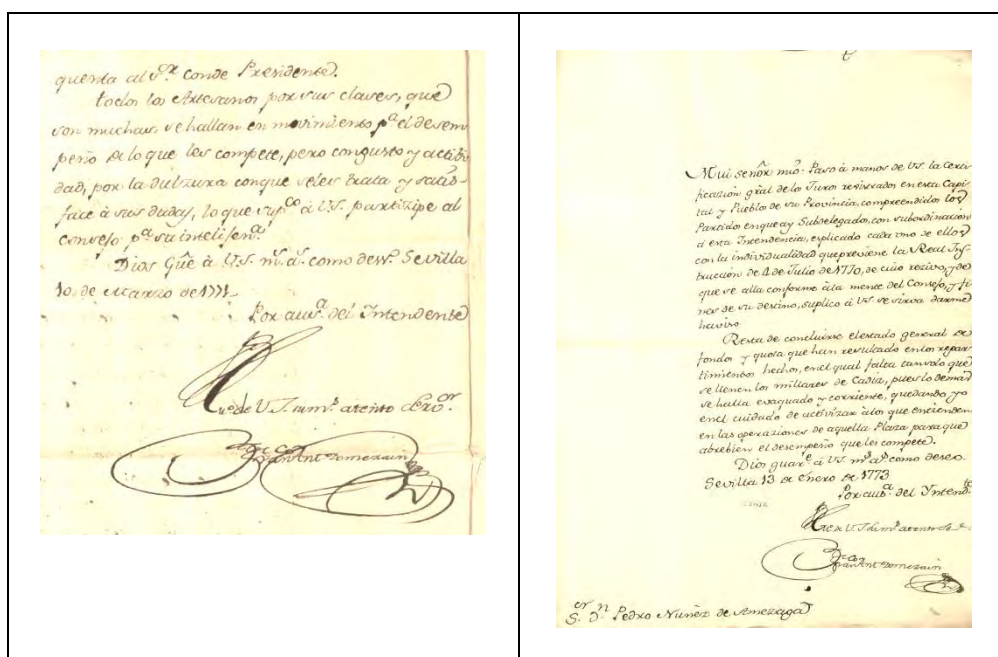 quenta al S.ᵒʳ conde Presidente.
todos los Artesanos por sus clases, que
son muchas, se hallan en movimiento p.ᵃ el desem
peño de lo que les compete, pero con gusto y actibi
dad, por la dulzura con que seles trata y satis
face à sus dudas, lo que sup.ᶜᵒ à V.S. partizipe al
consejo p.ᵃ su intelisen.ᵃ
Dios gũe à V.S. m.ˢ a.ˢ como deseo. Sevilla
10, de Marzo de 1771
Por aus.ᵃ del Intendente
de V.S. su m.ˢ atento
Fran.ᶜᵒ Ant.º Domezain
Mui señor mio: Paso à manos de VS. la Certi
ficazion gral de los Juros
tal y Pueblos de su Provincia, comprendidos los
Partidos en que ay Subdelegados, con subordinacion
à esta Intendencia, explicado cada uno de ellos
con la individualidad que previene la Real Ins
truccion de 4 de Julio de 1770, de cuio rezivo, y de
que se alla conforme à la mente del Consejo, y fi
nes de su destino, suplico à VS se sirva darme
haviso.
Resta de concluirse el estado general de
fondos y quota que han resultado en los repar
timientos hechos, en el qual falta tan solo que
se llenen los millares de Cadiz, pues lo demas
se halla evaquado y corriente, quedando yo
en el cuidado de activizar à los que entienden
en las operaziones de aquella Plaza para que
abrebien el desempeño que les compete.
Dios guar.ᵉ à VS. m.ˢ a.ˢ como deseo.
Sevilla 13 de Enero de 1773
Por aus.ᵃ del Intend.ᵗᵉ
de V.S. su m.ˢ atento
Fran.ᶜᵒ Ant.º Domezain
S.ᵒʳ D.ⁿ Pedro Nuñez de Amezaga